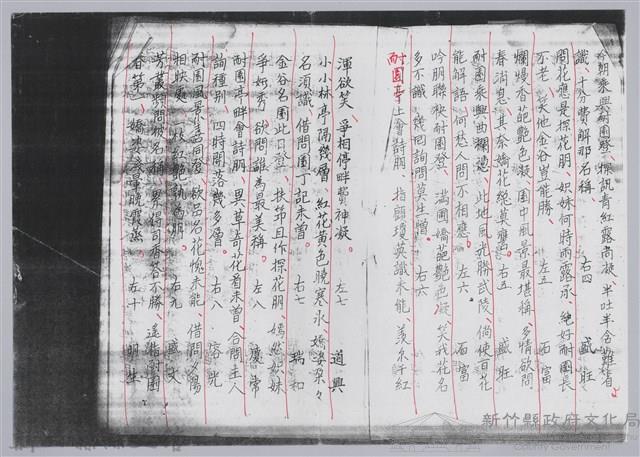 今朝乘興耐園登、探訊青紅露尚凝、半吐半含難省
識、十分費解那名稱、 右四 盛旺
問花應是探花朋、姊妹何時雨露承、絕好耐園長
不老、笑他金谷豈能勝、 左五 石富
爛熳香葩艷色凝、園中風景最堪稱、多情欲問
春消息、其奈嬌花總莫譍。 右五 盛旺
耐園乘興曲欄憑、此地風光勝武陵、倘使百花
能解語、何愁人問不相應。 左六 石富
吟朋聯袂耐園登、滿園嬌葩艷色凝、笑我花名
多不識、幾回詢問莫生憎、 右六
耐園亭上會詩朋、指顧瓊英識未能、羨尔千紅
渾欲笑、爭相停畔費神凝。 左七 道興
小小林亭隔幾層、紅花黃色曉寒永、嬌姿朵々
名須識、借問園丁記未曾、 右七 瑞和
金谷名園此日登、扶筇且作探花朋、嫣然姊妹
爭妍秀、欲問誰為最美稱。 左八 慶常
耐園亭畔會詩朋、異草奇花看未曾、合問主人
詢種別、四時開落幾多層。 右八
耐園風景 同登、欲問名花愧未能、借問夕陽
相映處、一枝紅艷 朋、 右九 盛文
芳叢 問彼名稱、累得司香答不勝、遙指耐園
春第一、嬌 曉霞蒸。 左十 明生
新竹縣政府文化局
County Government